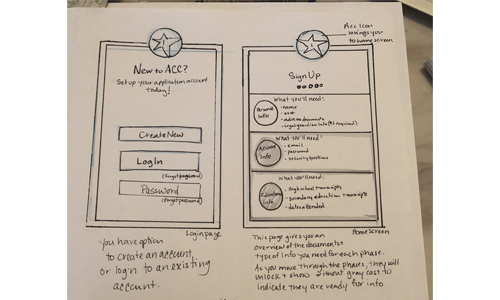 New to ACC?
Set up your application account
today!
Create New
Log In
(forgot password)
Password
(forgot password)
Login page
you have option
to create an account
or login to an existing
account.
Acc Icon
brings you
to home screen
Sign Up
What you'll need:
Personal
Info
- name
- address documents
- legal guardian info (if required)
What you'll need:
Account
Info
- email
- password
- security questions
What you'll need:
Education
Info
- high school transcripts
- secondary education transcripts
- dates attended
Home screen
This page gives you an
overview of the documents
type of info you need for each phase.
As you move through the phases, they will
unlock + show without gray cast to
indicate they are ready for info